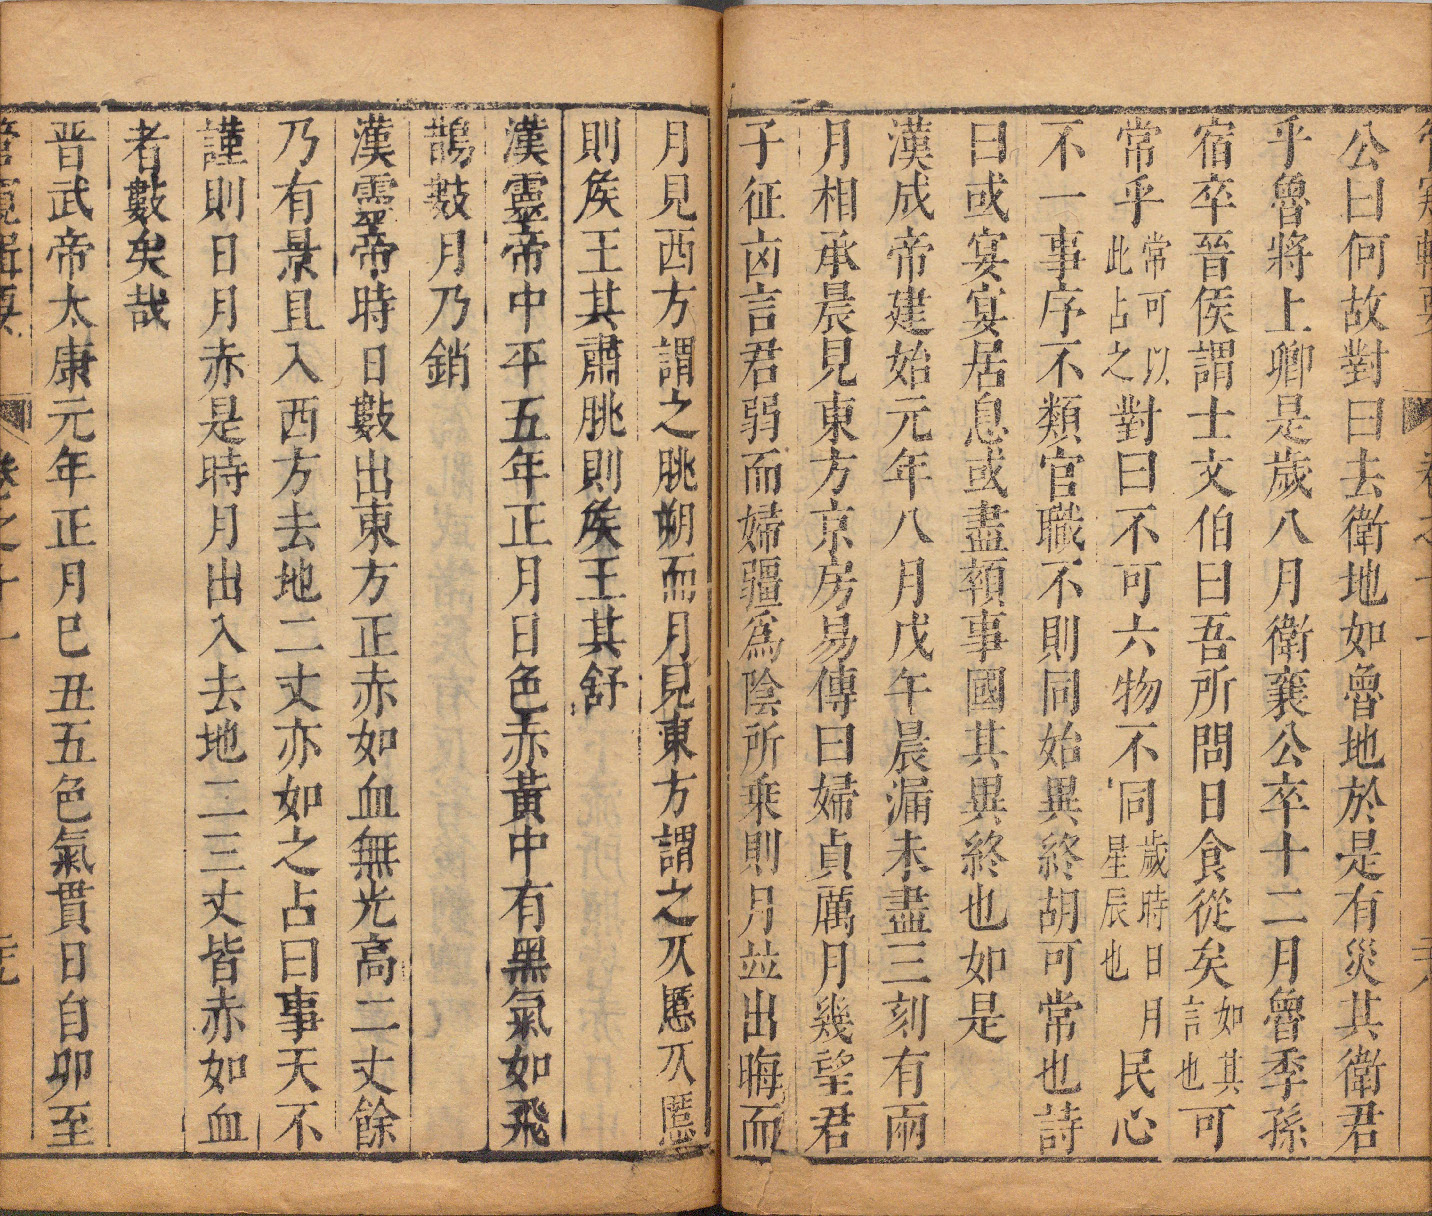 公曰何故對曰去衛地如魯地於是有災其衛君
乎魯將上卿是歲八月衛襄公卒十二月魯季孫
宿卒晉侯謂士文伯曰吾所問日食從矣如其言也可
常乎常可以此占之對曰不可六物不同歲時日月星辰也民心
不一事序不類官職不則同始異終胡可常也詩
曰或宴宴居息或盡顇事國其異終也如是
漢成帝建始元年八月戊午晨漏未盡三刻有兩
月相承晨見東方京房易傳曰婦貞厲月幾望君
子征凶言君弱而婦疆為陰所乘則月並出晦而
月見西方謂之朓朔而月見東方謂之仄慝仄慝
則矦王其肅朓則矦王其舒
漢靈帝中平五年正月日色赤黃中有黑氣如飛
鵲數月乃銷
漢靈帝時日數出東方正赤如血無光高二丈餘
乃有景且入西方去地二丈亦如之占曰事天不
謹則日月赤是時月出入去地二三丈皆赤如血
者數矣哉
晉武帝太康元年正月巳丑五色氣貫日自卯至
管窺輯要 卷之十一